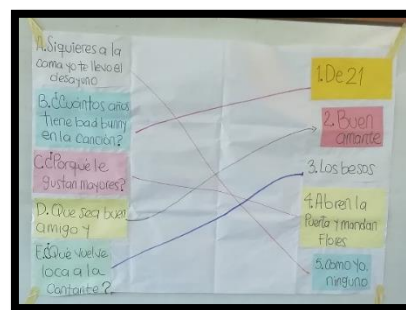 A. Siquieres a la
cama yo te llevo el
desayuno
B. ¿Cuántos años
tiene bad bunny
en la canción?
C. ¿Porqué le
gustan mayores?
D. Que sea buen
amigo y
E. ¿Qué vuelve
loca a la
cantante?
1. De 21
2. Buen
amante
3. Los besos
4. Abren la
Puerta y mandan
Flores
5. Como Yo,
ninguno